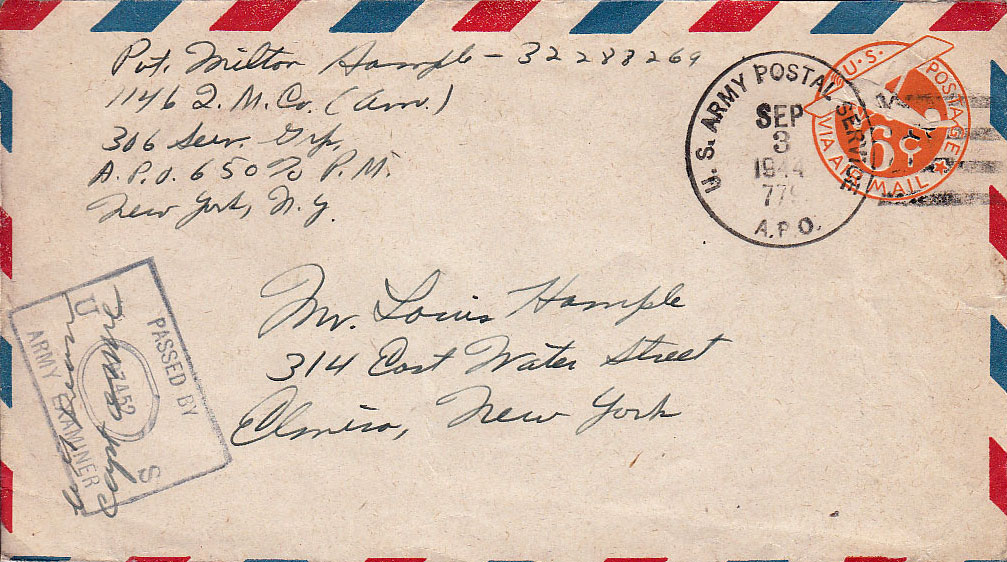 Pvt. Milton Hample - 32288269
1146 Q.M. Co. (Avn.)
306 Serv. Grp.
A.P.O. 650 % P.M.
New York, N.Y.
U. S. ARMY POSTAL SERVICE
SEP
3
1944
779
A.P.O.
U.S. POSTAGE
6¢
VIA AIR MAIL
Mr. Louis Hample
314 East Water Street
Elmira, New York
PASSED BY
U S
ARMY EXAMINER